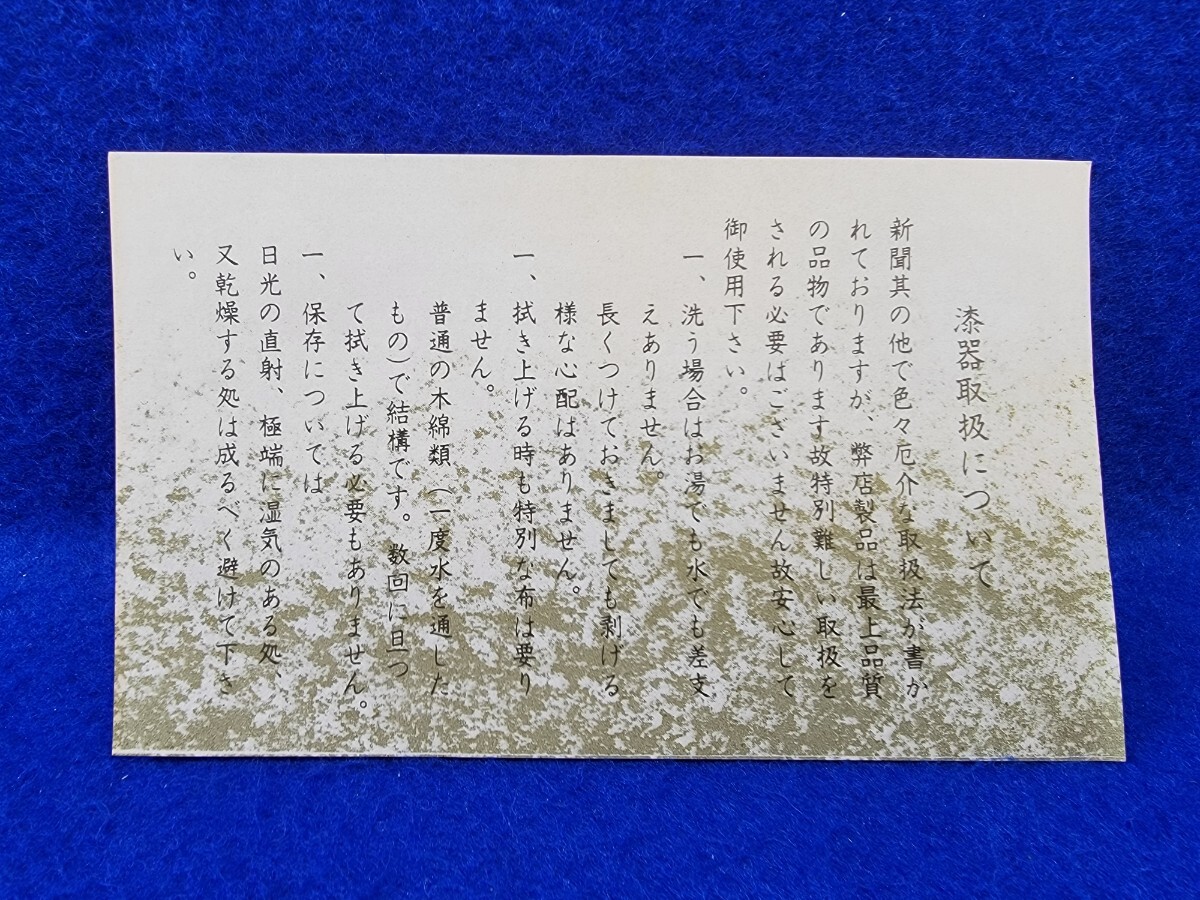 漆器取扱について
新聞其の他で色々厄介な取扱法が書か
れておりますが、弊店製品は最上品質
の品物であります故特別難しい取扱を
される必要はございません故安心して
御使用下さい。
一、洗う場合はお湯でも水でも差支
えありません。
長くつけておきましても剥げる
様な心配はありません。
一、拭き上げる時も特別な布は要り
ません。
普通の木綿類（一度水を通した
もの）で結構です。数回に旦つ
て拭き上げる必要もありません。
一、保存については
日光の直射、極端に湿気のある処、
又乾燥する処は成るべく避けて下さ
い。